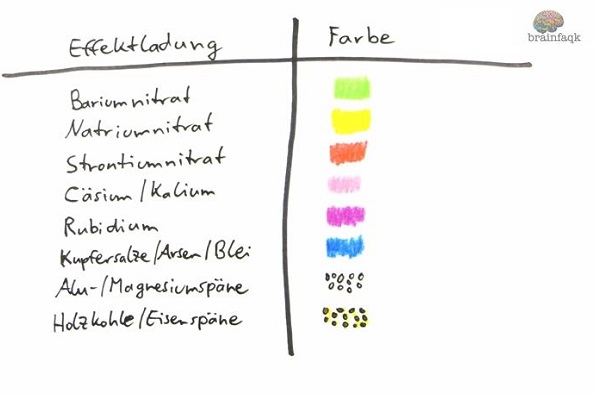 Effektladung Farbe
brainfaqk
Bariumnitrat
Natriumnitrat
Strontiumnitrat
Cäsium/Kalium
Rubidium
Kupfersalze/Arsen/Blei
Alu-/Magnesiumspäne
Holzkohle/Eisenspäne